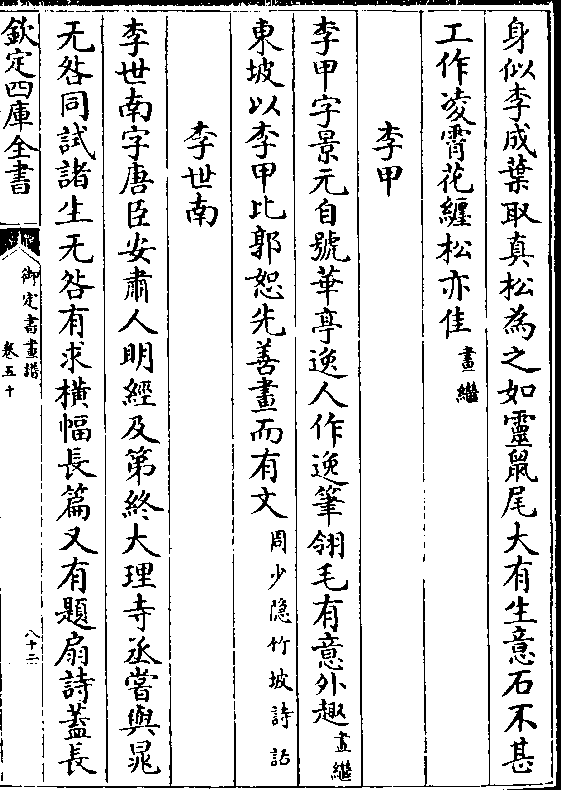 身似李成葉取真松為之如靈鼠尾大有生意石不甚
工作凌霄花纏松亦佳畫繼
李甲
李甲字景元自號華亭逸人作逸筆翎毛有意外趣畫繼
東坡以李甲比郭恕先善畫而有文周少隱竹坡詩話
李世南
李世南字唐臣安肅人明經及第終大理寺丞嘗與晁
无咎同試諸生无咎有求橫幅長篇又有題扇詩蓋長
欽定四庫全書
御定書畫譜
卷五十
八十二